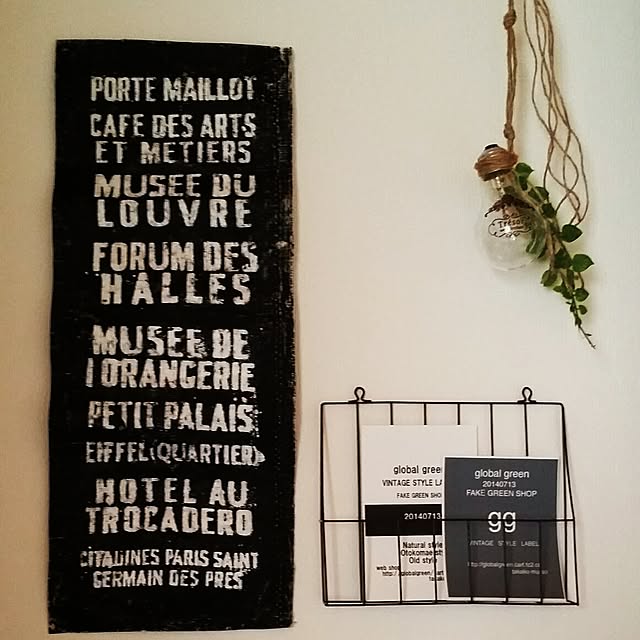 PORTE MAILLOT
CAFE DES ARTS
ET METIERS
MUSEE DU
LOUVRE
FORUM DES
HALLES
MUSEE DE
lORANGERIE
PETIT PALAIS
EIFFEL(QUARTIER)
HOTEL AU
TROCADERO
CITADINES PARIS SAINT
GERMAIN DES PRES
Trésor
global green
VINTAGE STYLE LA
FAKE GREEN SHO
20140713
Natural style
Otokomae st
Old style
web shop
http://globalgreen.
global green
20140713
FAKE GREEN SHOP
gg
VINTAGE STYLE LABEL